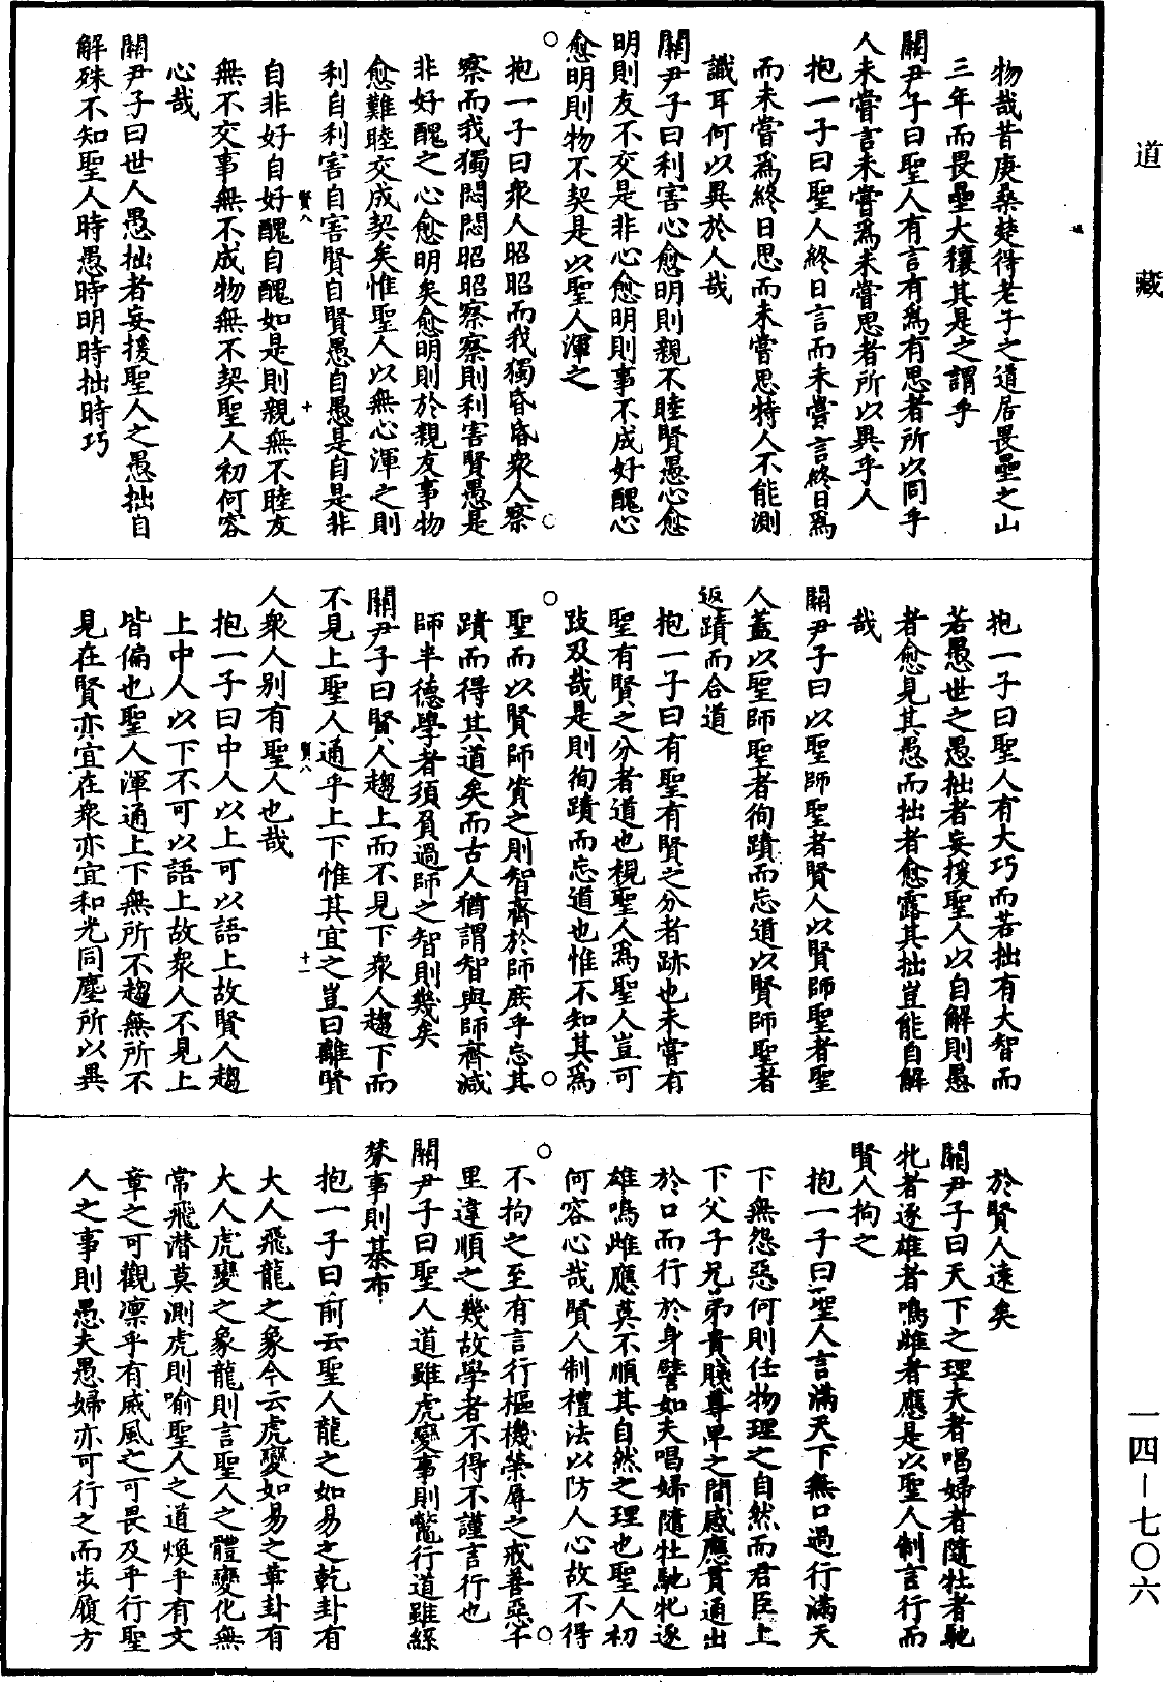 道藏
物哉昔庚桑楚得老子之道居畏壘之山
三年而畏壘大穰其是之謂乎
關尹子曰聖人有言有爲有思者所以同乎
人未嘗言未嘗爲未嘗思者所以異乎人
抱一子曰聖人終日言而未嘗言終日爲
而未嘗爲終日思而未嘗思特人不能測
識耳何以異於人哉
關尹子曰利害心愈明則親不睦賢愚心愈
明則友不交是非心愈明則事不成好醜心
愈明則物不契是以聖人渾之
抱一子曰衆人昭昭而我獨昏昏衆人察
察而我獨悶悶昭昭察察則利害賢愚是
非好醜之心愈明矣愈明則於親友事物
愈難睦交成契矣惟聖人以無心渾之則
利自利害自害賢自賢愚自愚是自是非
賢八
十
自非好自好醜自醜如是則親無不睦友
無不交事無不成物無不契聖人初何容
心哉
關尹子曰世人愚拙者妄援聖人之愚拙自
解殊不知聖人時愚時明時拙時巧
抱一子曰聖人有大巧而若拙有大智而
若愚世之愚拙者妄援聖人以自解則愚
者愈見其愚而拙者愈露其拙豈能自解
哉
關尹子曰以聖師聖者賢人以賢師聖者聖
人蓋以聖師聖者徇蹟而忘道以賢師聖者
返蹟而合道
抱一子曰有聖有賢之分者跡也未嘗有
聖有賢之分者道也視聖人爲聖人豈可
跂及哉是則徇蹟而忘道也惟不知其爲
聖而以賢師資之則智齊於師庶乎忘其
蹟而得其道矣而古人猶謂智與師齊減
師半德學者須負過師之智則幾矣
關尹子曰賢人趨上而不見下衆人趨下而
不見上聖人通乎上下惟其宜之豈曰離賢
賢八
十一
人衆人別有聖人也哉
抱一子曰中人以上可以語上故賢人趨
上中人以下不可以語上故衆人不見上
皆偏也聖人渾通上下無所不趨無所不
見在賢亦宜在衆亦宜和光同塵所以異
於賢人遠矣
關尹子曰天下之理夫者唱婦者隨牡者馳
牝者逐雄者鳴雌者應是以聖人制言行而
賢人拘之
抱一子曰聖人言滿天下無口過行滿天
下無怨惡何則任物理之自然而君臣上
下父子兄弟貴賤尊卑之間感應貫通出
於口而行於身譬如夫唱婦隨牡馳牝逐
雄鳴雌應莫不順其自然之理也聖人初
何容心哉賢人制禮法以防人心故不得
不拘之至有言行樞機榮辱之戒善惡千
里違順之幾故學者不得不謹言行也
關尹子曰聖人道雖虎變事則鼈行道雖絲
棼事則棊布
抱一子曰前云聖人龍之如易之乾卦有
大人飛龍之象今云虎變如易之革卦有
大人虎變之象龍則言聖人之體變化無
常飛潛莫測虎則喻聖人之道煥乎有文
章之可觀凛乎有威風之可畏及乎行聖
人之事則愚夫愚婦亦可行之而步履方
一四—七〇六